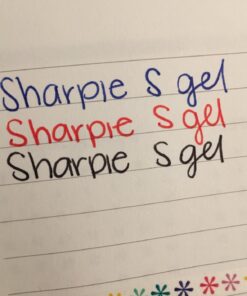 Sharpie S gel
Sharpie S gel
Sharpie S gel